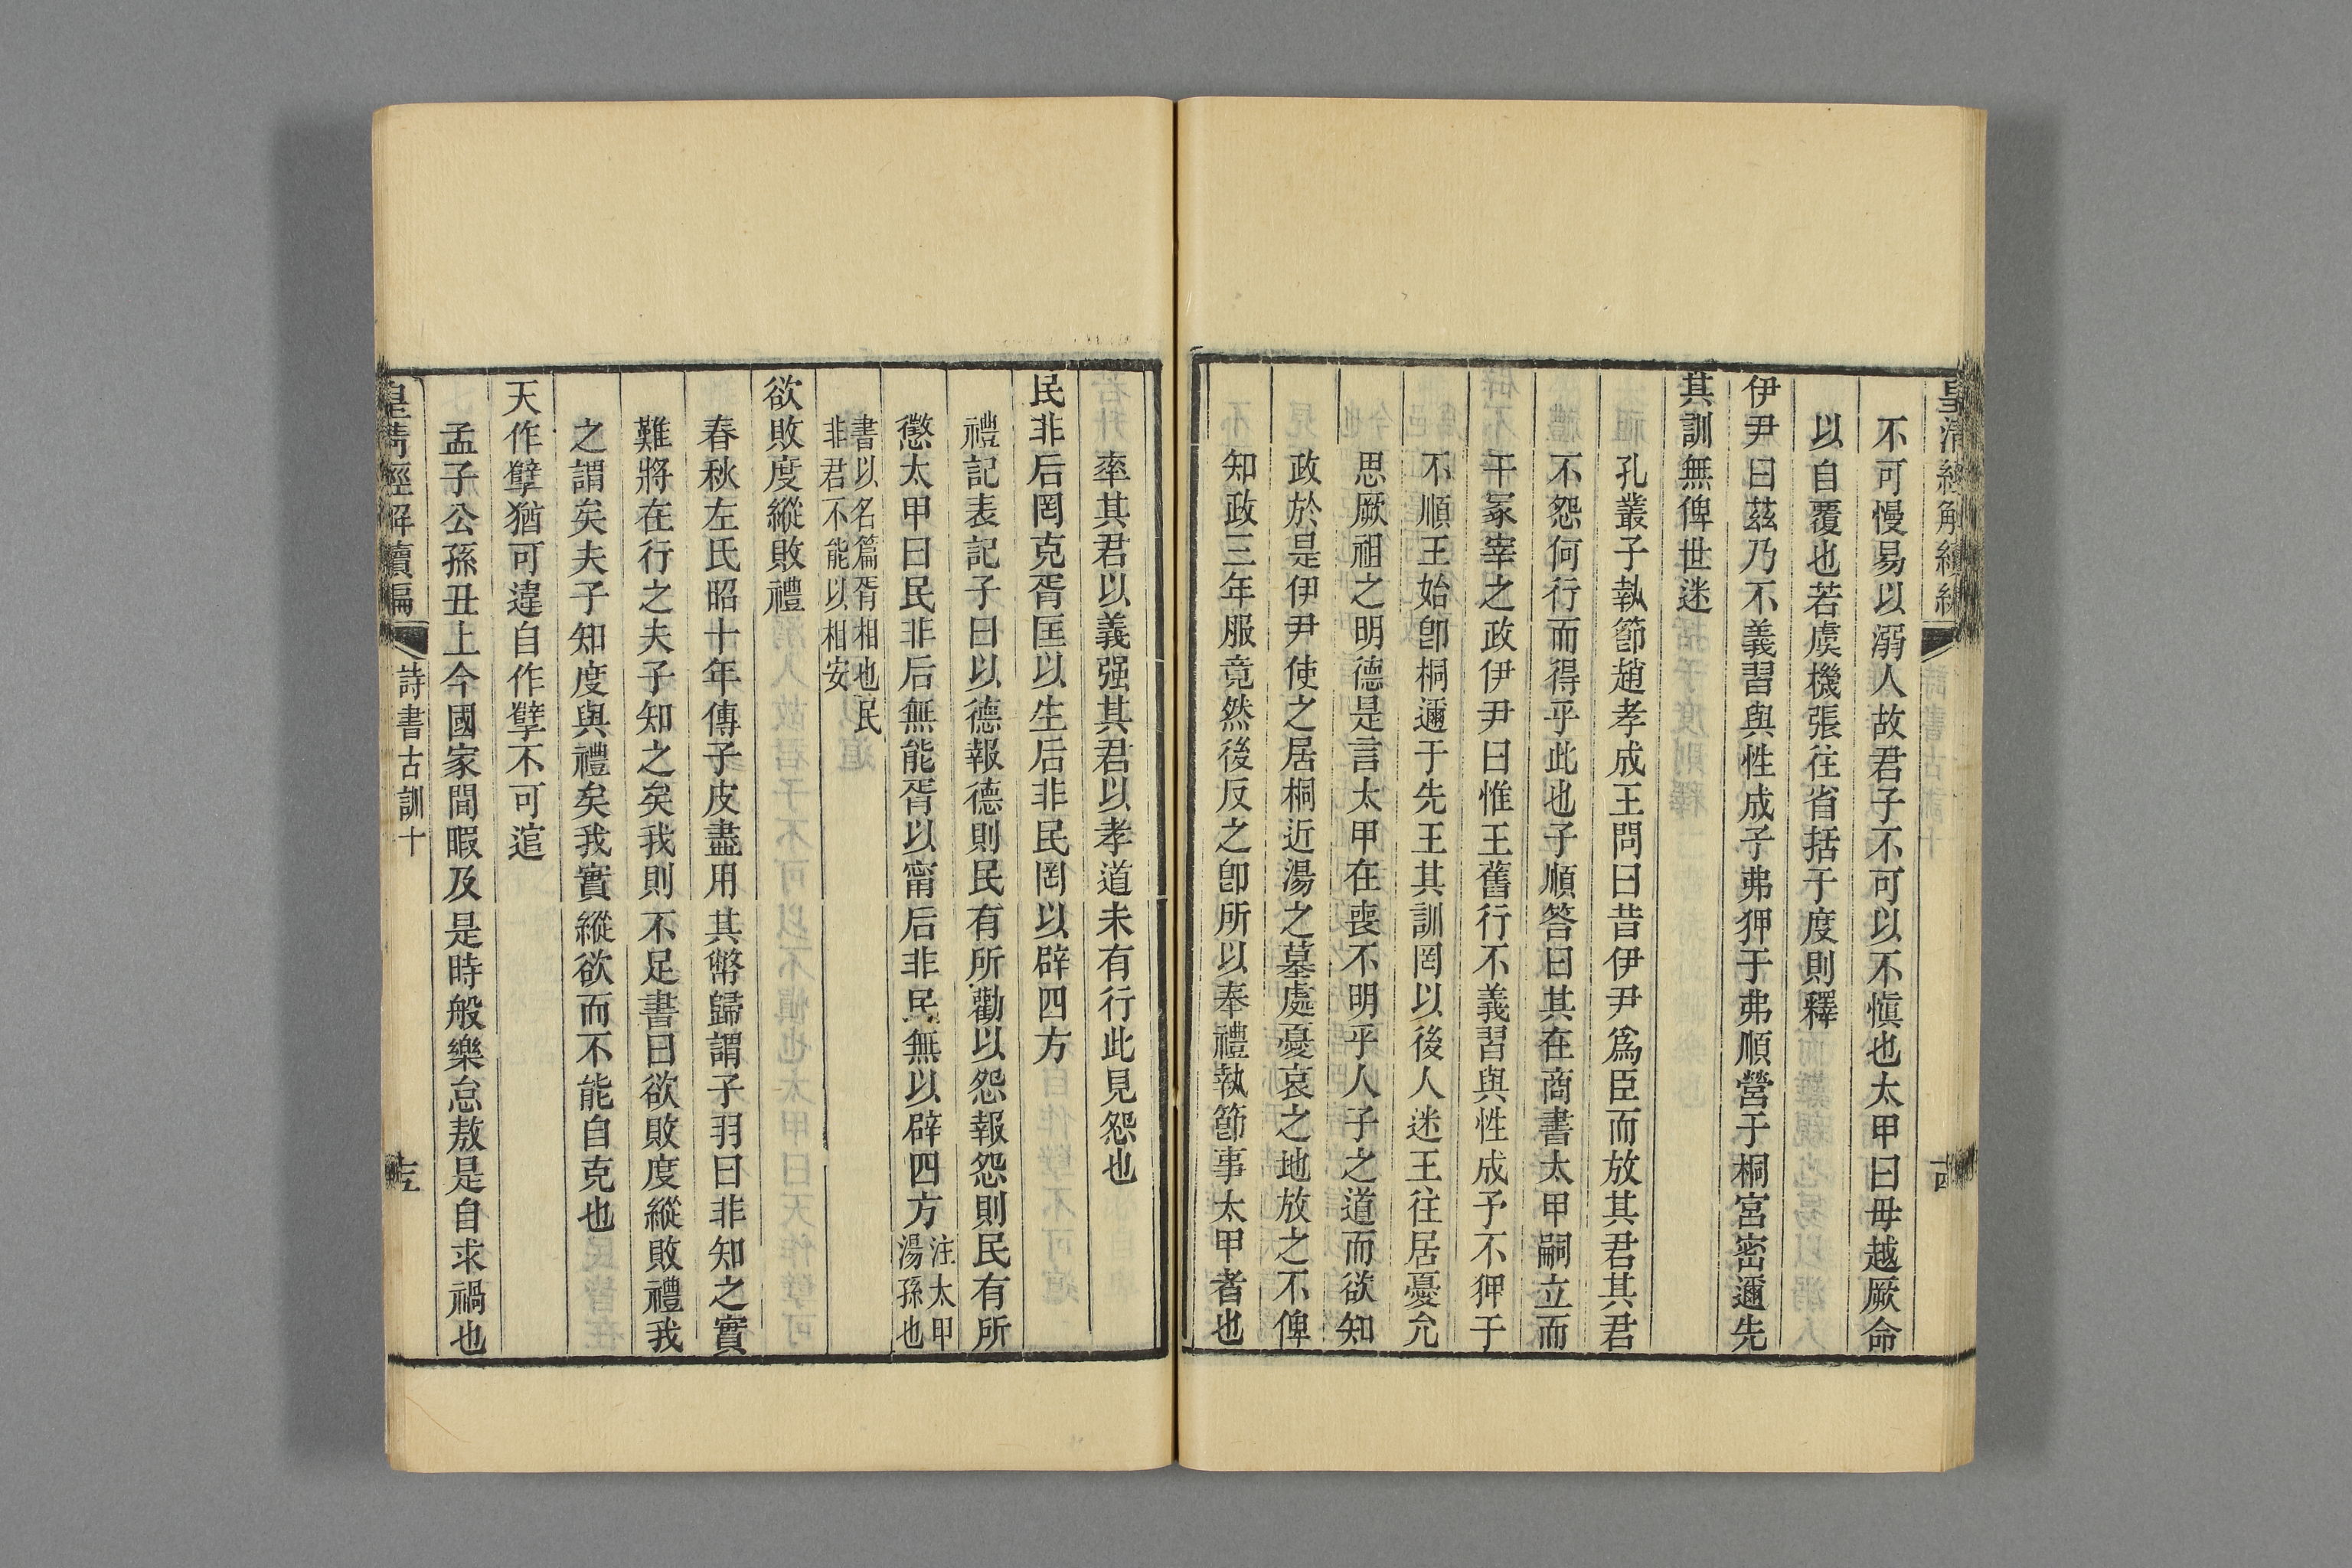 不可慢易以溺人故君子不可以不愼也太甲曰毋越厥命
以自覆也若虞機張往省括于度則釋
伊尹曰茲乃不義習與性成予弗狎于弗順營于桐宮密邇先
其訓無俾世迷
孔叢子執節趙孝成王問曰昔伊尹爲臣而放其君其君
不怨何行而得乎此也子順答曰其在商書太甲嗣立而
干冢宰之政伊尹曰惟王舊行不義習與性成予不狎于
不順王始卽桐邇于先王其訓罔以後人迷王往居憂允
思厥祖之明德是言太甲在喪不明乎人子之道而欲知
政於是伊尹使之居桐近湯之墓處憂哀之地放之不俾
知政三年服竟然後反之卽所以奉禮執節事太甲者也
率其君以義强其君以孝道未有行此見怨也
民非后罔克胥匡以生后非民罔以辟四方
禮記表記子曰以德報德則民有所勸以怨報怨則民有所
懲太甲曰民非后無能胥以甯后非民無以辟四方注太甲湯孫也
書以名篇胥相也民
非君不能以相安
欲敗度縱敗禮
春秋左氏昭十年傳子皮盡用其幣歸謂子羽曰非知之實
難將在行之夫子知之矣我則不足書曰欲敗度縱敗禮我
之謂矣夫子知度與禮矣我實縱欲而不能自克也
天作孼猶可違自作孼不可逭
孟子公孫丑上今國家閒暇及是時般樂怠敖是自求禍也
皇清經解續編 詩書古訓十